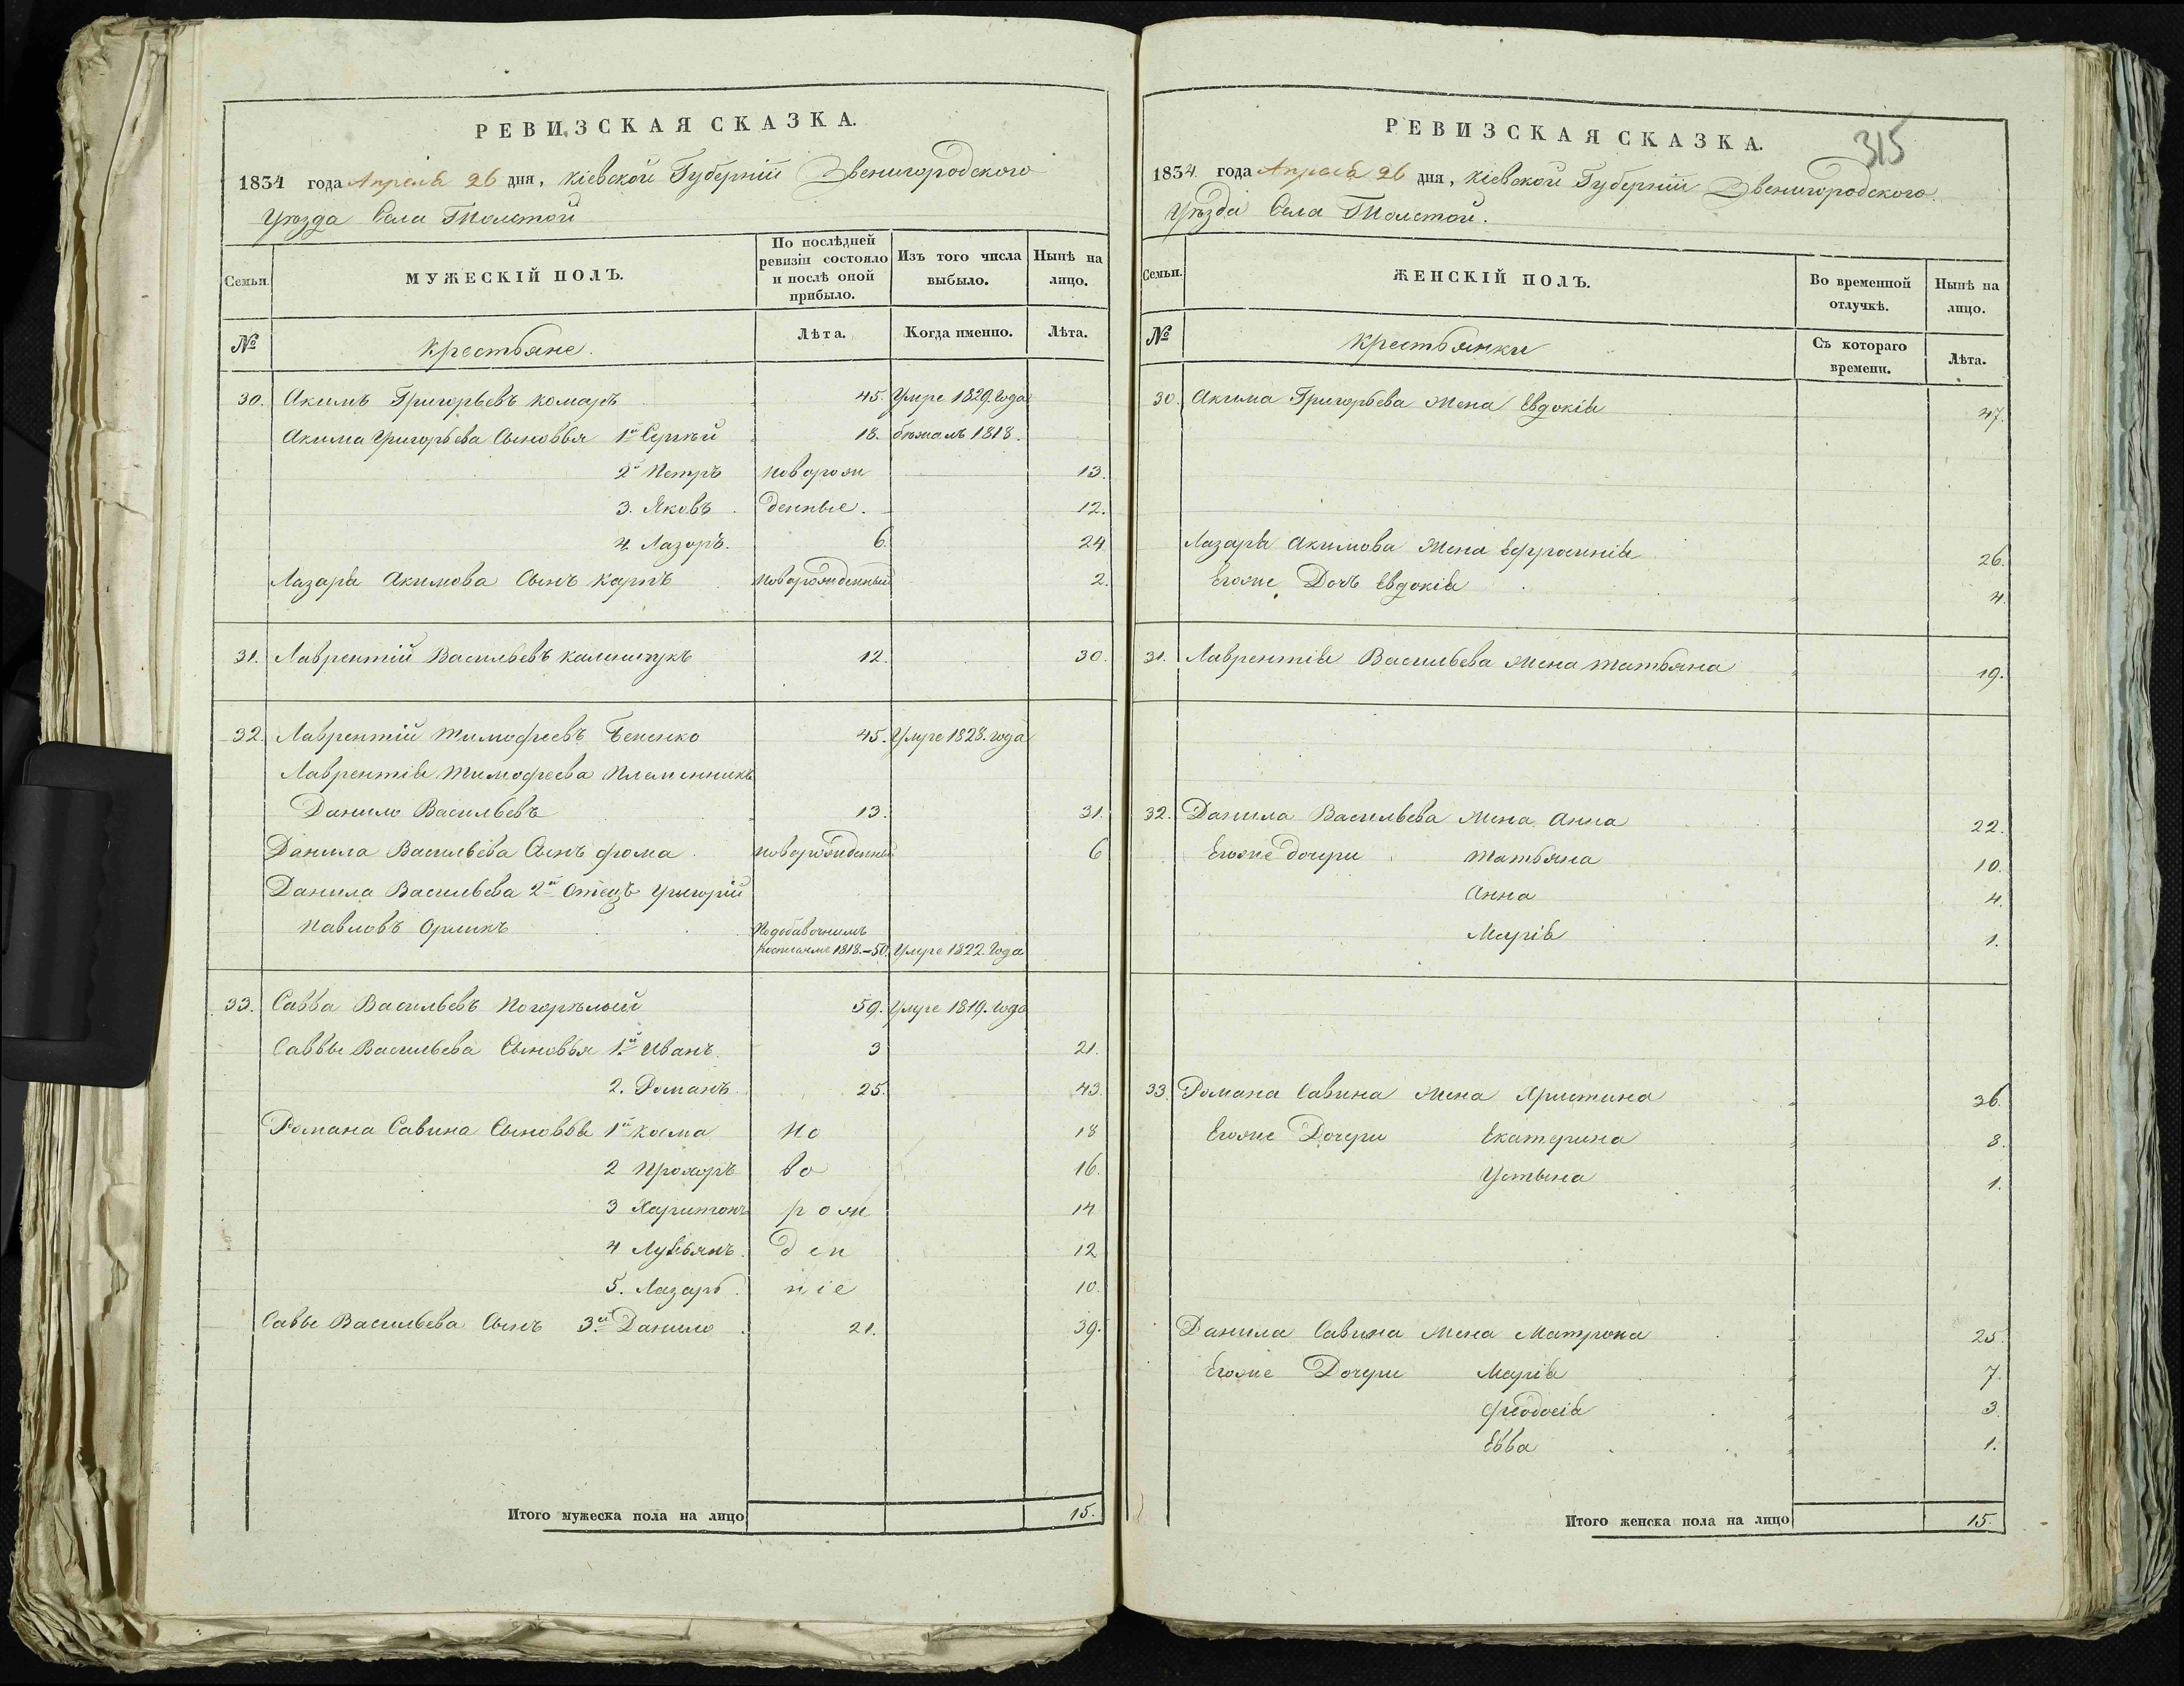 РЕВИЗСКАЯ СКАЗКА.
1834 года Апреля 26 дня, Кіевской Губерніи Звенигородского
Уѣзда Села Толстой
Семьи.
МУЖЕСКІЙ ПОЛЪ.
По послѣдней ревизіи состояло и послѣ оной прибыло.
Изъ того числа выбыло.
Нынѣ на лицо.
№
Крестьяне.
Лѣта.
Когда именно.
Лѣта.
30. Акимъ Григорьевъ Комаръ 45. Умре 1829. года
Акима Григорьева Сыновья 1й Сергѣй 18. бѣжалъ 1818.
2й Петръ новорож 13.
3. Яковъ денные. 12.
4. Лазоръ. 6. 24
Лазаря Акимова Сынъ Карпъ новорожденный 2.
31. Лаврентій Васильевъ Калиничукъ 12. 30.
32. Лаврентій Тимофеевъ 45. Умре 1828. года
Лаврентія Тимофеева Племянникъ
Данило Васильевъ 13. 31.
Данила Васильева Сынъ Фома новорожденный 6
Данила Васильева 2й Отецъ Григорій
Павловъ Орликъ
1818.-50. Умре 1822. Года
33. Савва Васильевъ Погорѣлый 59. Умре 1819. года
Саввы Васильева Сыновья 1.й Иванъ 3 21.
2. Романъ. 25. 43.
Романа Савина Сыновья 1й Косма Но 18
2 Прохоръ во 16.
3 Харитонъ рож 14
4 Лукьянъ. ден 12
5. Лазарь. ніе 10.
Савы Васильева Сынъ 3.й Данило 21. 39.
Итого мужеска пола на лицо 15.
315
РЕВИЗСКАЯ СКАЗКА.
1834. года Апреля 26 дня, Кіевской Губерніи Звенигородского.
Уѣзда Села Толстой.
Семьи.
ЖЕНСКІЙ ПОЛЪ.
Во временной отлучкѣ.
Нынѣ на лицо.
№
Крестьянки
Съ котораго времени.
Лѣта.
30. Акима Григорьева Жена Евдокія 47.
Лазаря Акимова Жена Ефросинія 26.
Егоже Дочь Евдокія 4.
31. Лаврентія Васильева Жена Татьяна 19.
32. Данила Васильева Жена Анна 22.
Егоже дочери Татьяна 10.
Анна 4.
Марія 1.
33. Романа Савина Жена Христина 36.
Егоже Дочери Екатерина 8.
Устына 1.
Данила Савина Жена Матрона 25
Егоже Дочери Марія 7.
Феодосія 3.
Евва 1.
Итого женска пола на лицо 15.